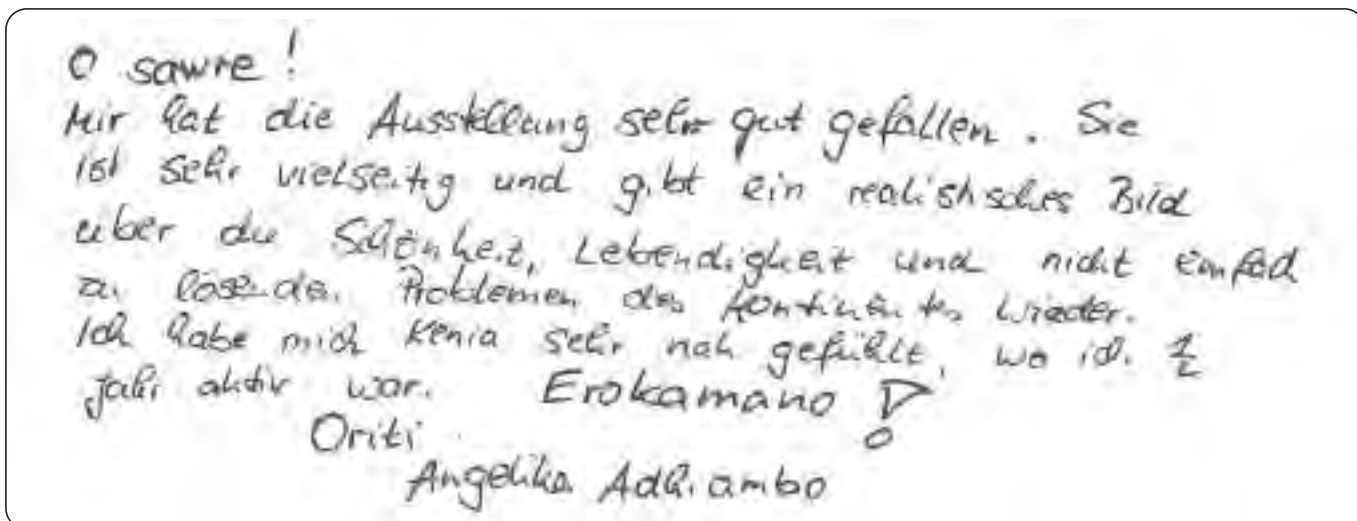 O sawre!
Mir hat die Ausstellung sehr gut gefallen. Sie
ist sehr vielseitig und gibt ein realistisches Bild
über die Schönheit, Lebendigkeit und nicht einfach
zu lösenden Problemen des Kontinentes wieder.
Ich habe mich Kenia sehr nah gefühlt, wo ich 1/2
Jahr aktiv war. Erokamano!
Oriti
Angelika Adhiambo